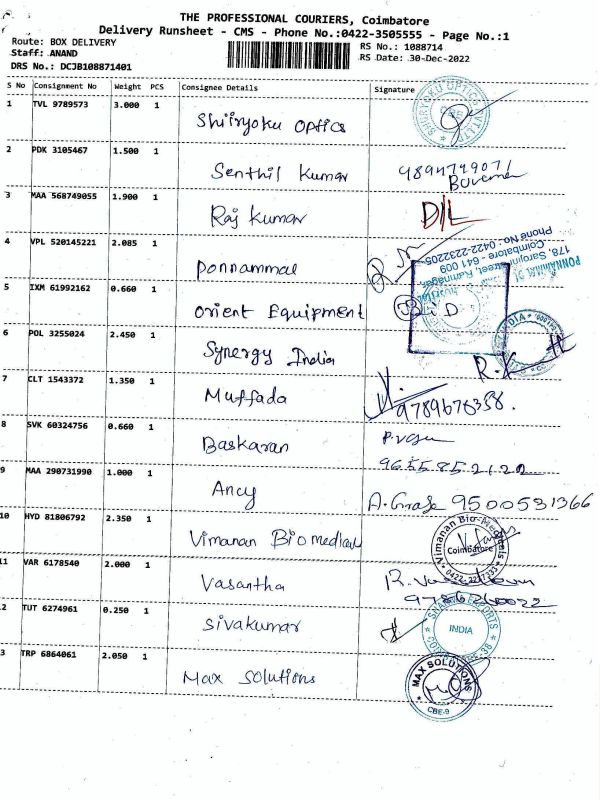 THE PROFESSIONAL COURIERS, Coimbatore
Delivery Runsheet - CMS - Phone No.:0422-3505555 - Page No.:1
Route: BOX DELIVERY
Staff: ANAND
DRS No.: DCJB108871401
RS No.: 1088714
RS Date: 30-Dec-2022
S No Consignment No Weight PCS Consignee Details Signature
1 TVL 9789573 3.000 1 Shiiryoku Optics
2 PDK 3105467 1.500 1 Senthil Kumar
3 MAA 568749055 1.900 1 Raj Kumar D/L
4 VPL 520145221 2.085 1 Ponnammal
Coimbatore - 641 009
Phone No : 0422-2232205
5 IXM 61992162 0.660 1 Orient Equipment
6 POL 3255024 2.450 1 Synergy India
7 CLT 1543372 1.350 1 Muffada
8 SVK 60324756 0.660 1 Baskaran
9 MAA 290731990 1.000 1 Ancy 9500531366
10 HYD 81806792 2.350 1 Vimanan Biomedical
Vimanan Bio-Medicals
Coimbatore
11 VAR 6178540 2.000 1 Vasantha
2 TUT 6274961 0.250 1 Sivakumar
INDIA
3 TRP 6864061 2.050 1 Max Solutions
MAX SOLUTIONS
CBE-9